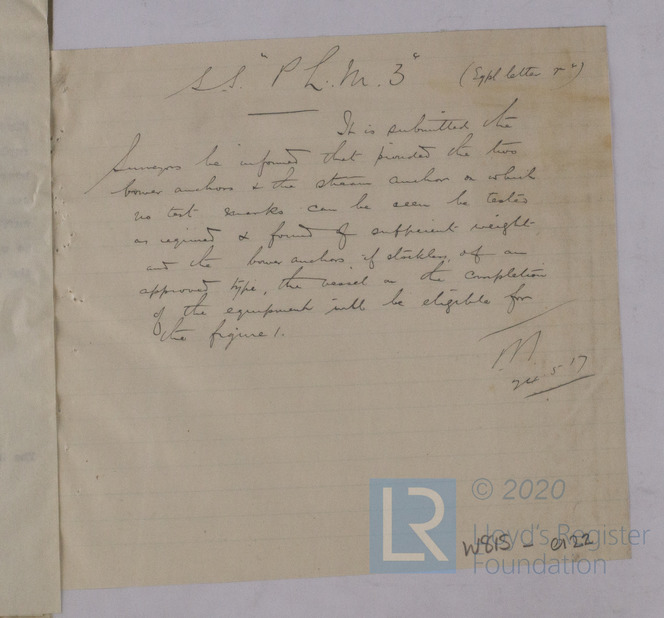 S.S. "P L. M. 3" (Sgpl letter
It is submitted the
Surveyors be informed that provided the two
bower anchors & the stream anchor on which
no test marks can be seen be tested
as required & found of sufficient weight
and the bower anchors, if stockless, of an
approved type, the vessel on the completion
of the equipment will be eligible for
the figure 1.
M.
24.5.17
LR
© 2020
Lloyd's Register
Foundation
W815 - 0122